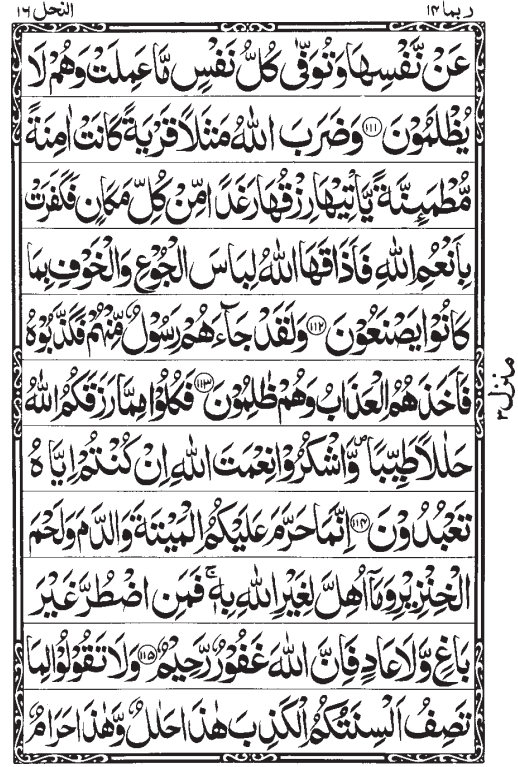 ربما ١٤
النحل ١٦
عَنْ نَّفْسِهَا وَتُوَفّٰى كُلُّ نَفْسٍ مَّا عَمِلَتْ وَهُمْ لَا
يُظْلَمُوْنَ ﴿١١١﴾ وَضَرَبَ اللّٰهُ مَثَلًا قَرْيَةً كَانَتْ اٰمِنَةً
مُّطْمَىِٕنَّةً يَّاْتِيْهَا رِزْقُهَا رَغَدًا مِّنْ كُلِّ مَكَانٍ فَكَفَرَتْ
بِاَنْعُمِ اللّٰهِ فَاَذَاقَهَا اللّٰهُ لِبَاسَ الْجُوْعِ وَالْخَوْفِ بِمَا
كَانُوْا يَصْنَعُوْنَ ﴿١١٢﴾ وَلَقَدْ جَآءَهُمْ رَسُوْلٌ مِّنْهُمْ فَكَذَّبُوْهُ
فَاَخَذَهُمُ الْعَذَابُ وَهُمْ ظٰلِمُوْنَ ﴿١١٣﴾ فَكُلُوْا مِمَّا رَزَقَكُمُ اللّٰهُ
حَلٰلًا طَيِّبًا ۪ وَّاشْكُرُوْا نِعْمَتَ اللّٰهِ اِنْ كُنْتُمْ اِيَّاهُ
تَعْبُدُوْنَ ﴿١١٤﴾ اِنَّمَا حَرَّمَ عَلَيْكُمُ الْمَيْتَةَ وَالدَّمَ وَلَحْمَ
الْخِنْزِيْرِ وَمَاۤ اُهِلَّ لِغَيْرِ اللّٰهِ بِهٖ ۚ فَمَنِ اضْطُرَّ غَيْرَ
بَاغٍ وَّلَا عَادٍ فَاِنَّ اللّٰهَ غَفُوْرٌ رَّحِيْمٌ ﴿١١٥﴾ وَلَا تَقُوْلُوْا لِمَا
تَصِفُ اَلْسِنَتُكُمُ الْكَذِبَ هٰذَا حَلٰلٌ وَّهٰذَا حَرَامٌ
منزل ٣